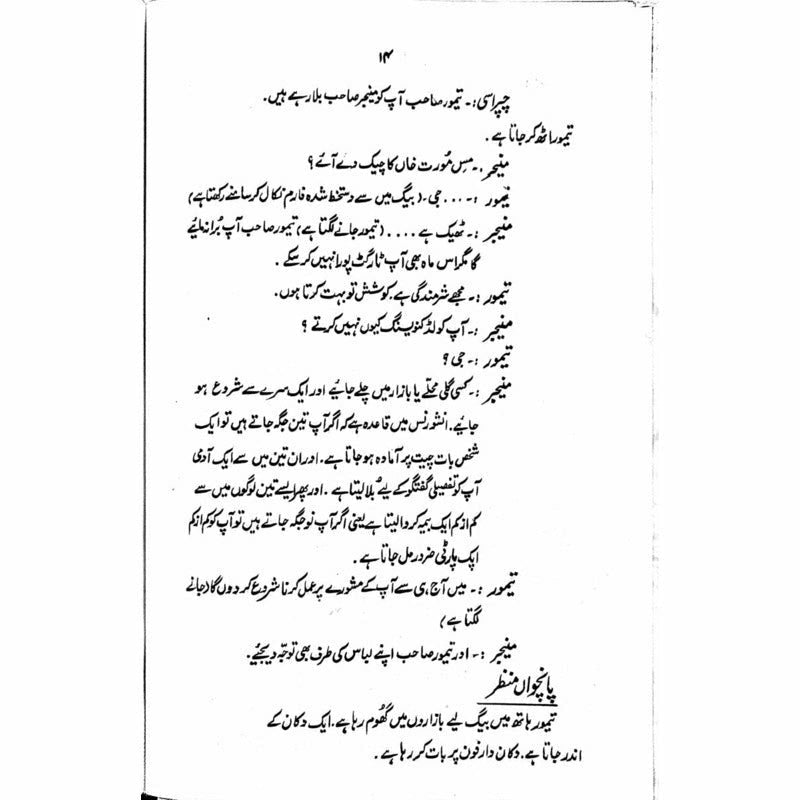 ۱۴
چپراسی :۔ تیمور صاحب آپ کو منیجر صاحب بلا رہے ہیں۔
تیمور اٹھ کر جاتا ہے۔
منیجر :۔ مس مُورت خاں کا چیک دے آئے؟
تیمور :۔ ... جی۔ (بیگ میں سے دستخط شدہ فارم نکال کر سامنے رکھتا ہے)
منیجر :۔ ٹھیک ہے .... (تیمور جانے لگتا ہے) تیمور صاحب آپ بُرا نہ مانئیے
گا مگر اس ماہ بھی آپ ٹارگٹ پورا نہیں کر سکے۔
تیمور :۔ مجھے شرمندگی ہے۔ کوشش تو بہت کرتا ہوں۔
منیجر :۔ آپ کولڈ کنویسنگ کیوں نہیں کرتے؟
تیمور :۔ جی؟
منیجر :۔ کسی گلی محلّے یا بازار میں چلے جائیے اور ایک سرے سے شروع ہو
جائیے۔ انشورنس میں قاعدہ ہے کہ اگر آپ تین جگہ جاتے ہیں تو ایک
شخص بات چیت پر آمادہ ہو جاتا ہے۔ اور ان تین میں سے ایک آدمی
آپ کو تفصیلی گفتگو کے لیے بلا لیتا ہے۔ اور پھر ایسے تین لوگوں میں سے
کم از کم ایک بیمہ کروا لیتا ہے یعنی اگر آپ نو جگہ جاتے ہیں تو آپ کو کم از کم
ایک پارٹی ضرور مل جاتا ہے۔
تیمور :۔ میں آج ہی سے آپ کے مشورے پر عمل کرنا شروع کر دوں گا (جانے
لگتا ہے)
منیجر :۔ اور تیمور صاحب اپنے لباس کی طرف بھی توجّہ دیجئیے۔
پانچواں منظر
تیمور ہاتھ میں بیگ لیے بازاروں میں گھُوم رہا ہے۔ ایک دکان کے
اندر جاتا ہے۔ دکان دار فون پر بات کر رہا ہے۔